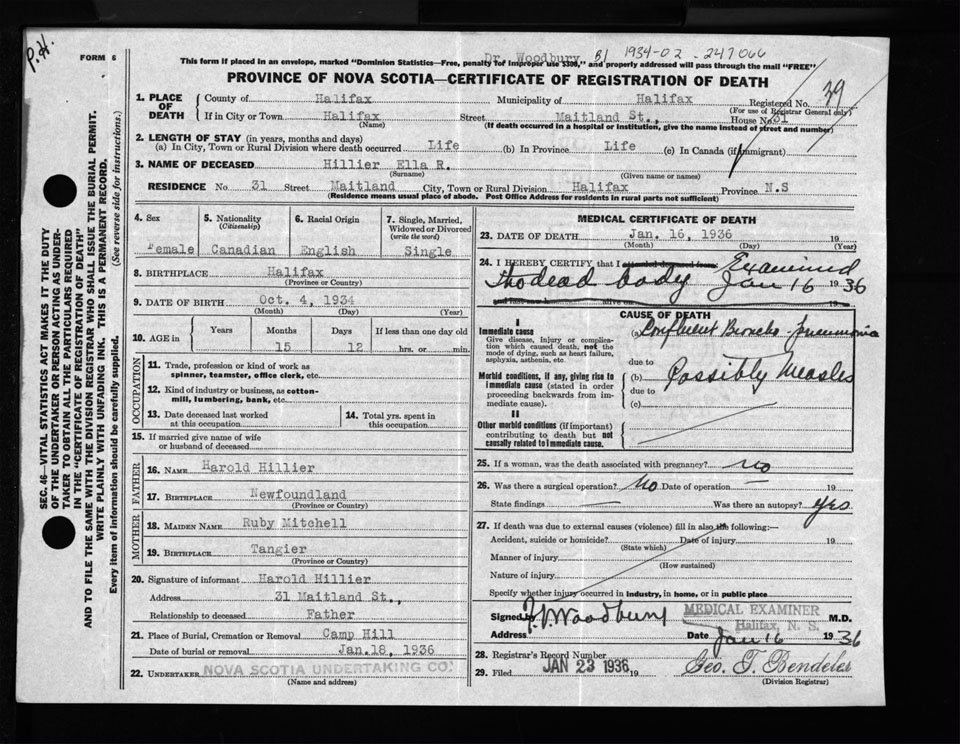 P.H.
FORM 6
Dr. Woodbury B1 1934-02-247066
This form if placed in an envelope, marked "Dominion Statistics—Free, penalty for improper use $300," and properly addressed will pass through the mail "FREE"
PROVINCE OF NOVA SCOTIA—CERTIFICATE OF REGISTRATION OF DEATH
39
1. PLACE OF DEATH County of Halifax Municipality of Halifax Registered No.
(For use of Registrar General only)
If in City or Town Halifax Street Maitland St., House No. 31
(Name) (If death occurred in a hospital or institution, give the name instead of street and number)
2. LENGTH OF STAY (in years, months and days)
(a) In City, Town or Rural Division where death occurred Life (b) In Province Life (c) In Canada (if immigrant)
3. NAME OF DECEASED Hillier Ella R.
(Surname) (Given name or names)
RESIDENCE No. 31 Street Maitland City, Town or Rural Division Halifax Province N.S
(Residence means usual place of abode. Post Office Address for residents in rural parts not sufficient)
4. Sex 5. Nationality (Citizenship) 6. Racial Origin 7. Single, Married, Widowed or Divorced (write the word)
Female Canadian English Single
8. BIRTHPLACE Halifax
(Province or Country)
9. DATE OF BIRTH Oct. 4, 1934
(Month) (Day) (Year)
10. AGE in Years Months Days If less than one day old
15 12 hrs. or min.
OCCUPATION
11. Trade, profession or kind of work as spinner, teamster, office clerk, etc.
12. Kind of industry or business, as cotton-mill, lumbering, bank, etc.
13. Date deceased last worked at this occupation 14. Total yrs. spent in this occupation
15. If married give name of wife or husband of deceased
FATHER
16. NAME Harold Hillier
17. BIRTHPLACE Newfoundland
(Province or Country)
MOTHER
18. MAIDEN NAME Ruby Mitchell
19. BIRTHPLACE Tangier
(Province or Country)
20. Signature of informant Harold Hillier
Address 31 Maitland St.,
Relationship to deceased Father
21. Place of Burial, Cremation or Removal Camp Hill
Date of burial or removal Jan.18, 1936
22. UNDERTAKER NOVA SCOTIA UNDERTAKING CO.
(Name and address)
MEDICAL CERTIFICATE OF DEATH
23. DATE OF DEATH Jan. 16, 1936 19
(Month) (Day) (Year)
24. I HEREBY CERTIFY, that I attended deceased from Examined
the dead body Jan 16 1936
and last saw h alive on 19
CAUSE OF DEATH
I
Immediate cause (a) Confluent Broncho-pneumonia
Give disease, injury or complication which caused death, not the mode of dying, such as heart failure, asphyxia, asthenia, etc.
due to
Morbid conditions, if any, giving rise to immediate cause (stated in order proceeding backwards from immediate cause).
(b) Possibly Measles
due to
(c)
II
Other morbid conditions (if important) contributing to death but not causally related to immediate cause.
25. If a woman, was the death associated with pregnancy? no
26. Was there a surgical operation? No Date of operation 19
State findings Was there an autopsy? Yes
27. If death was due to external causes (violence) fill in also the following:—
Accident, suicide or homicide? Date of injury 19
(State which)
Manner of injury
(How sustained)
Nature of injury
Specify whether injury occurred in industry, in home, or in public place
Signed by F.V. Woodbury MEDICAL EXAMINER M.D.
Halifax, N. S.
Address Date Jan 16 1936
28. Registrar's Record Number
29. Filed JAN 23 1936 19 Geo. T. Bendeler
(Division Registrar)
SEC. 46—VITAL STATISTICS ACT MAKES IT THE DUTY
OF THE UNDERTAKER OR PERSON ACTING AS UNDER-
TAKER TO OBTAIN ALL THE PARTICULARS REQUIRED
IN THE "CERTIFICATE OF REGISTRATION OF DEATH"
AND TO FILE THE SAME WITH THE DIVISION REGISTRAR WHO SHALL ISSUE THE BURIAL PERMIT.
WRITE PLAINLY WITH UNFADING INK. THIS IS A PERMANENT RECORD.
Every item of information should be carefully supplied. (See reverse side for instructions.)